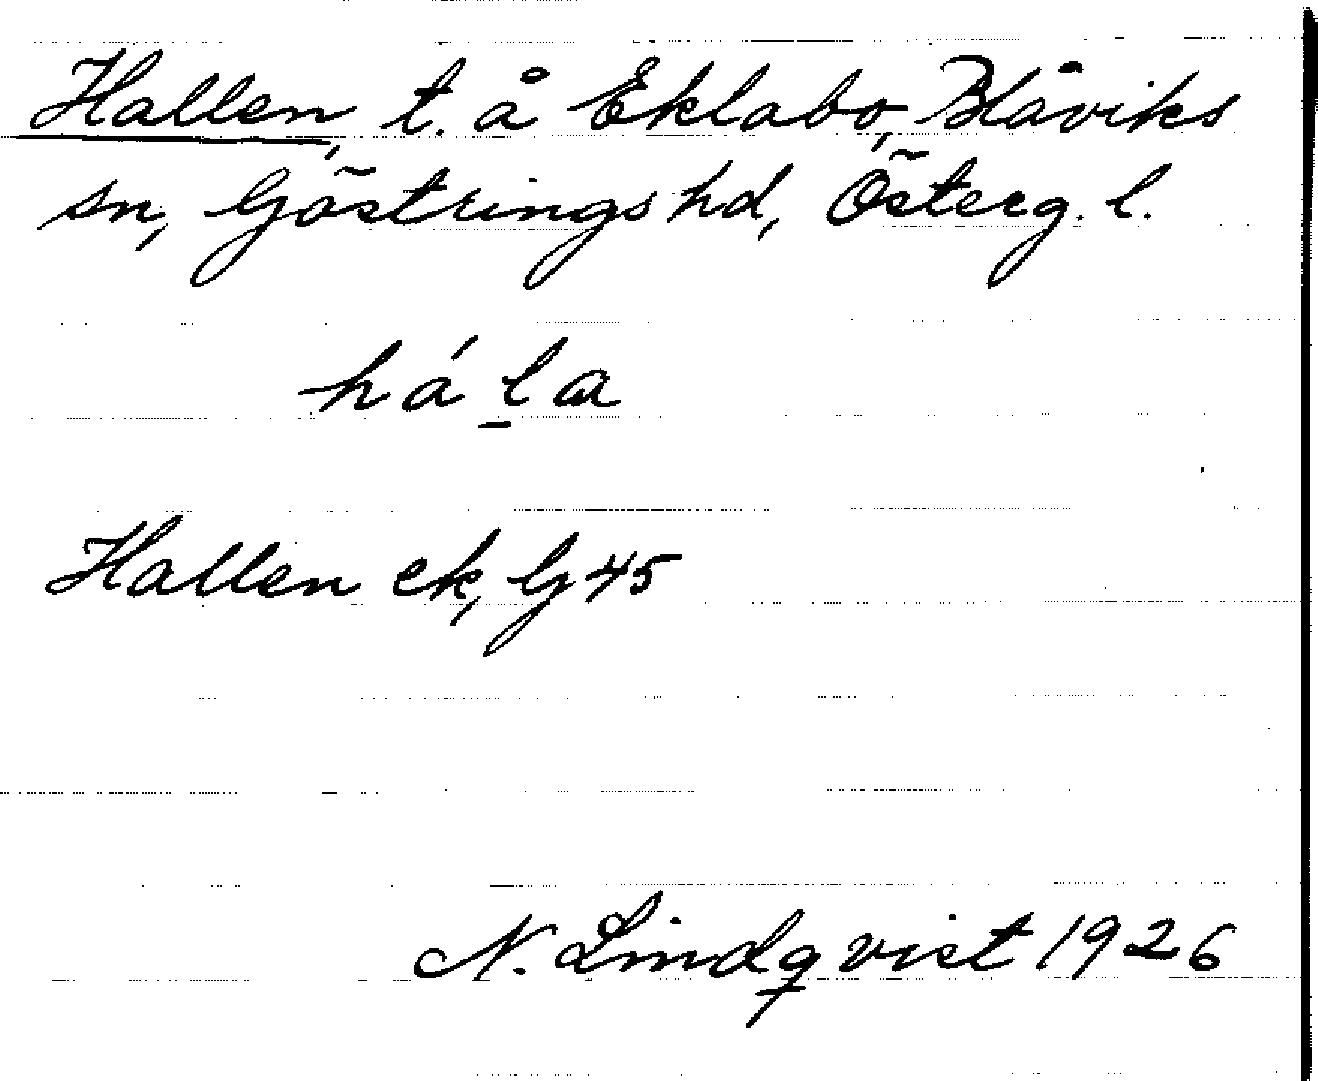 Hallen, t. å Eklabo, Blåviks
sn, Göstrings hd, Österg. l.
há l̲a
Hallen ek, Gj 45
N. Lindqvist 1926